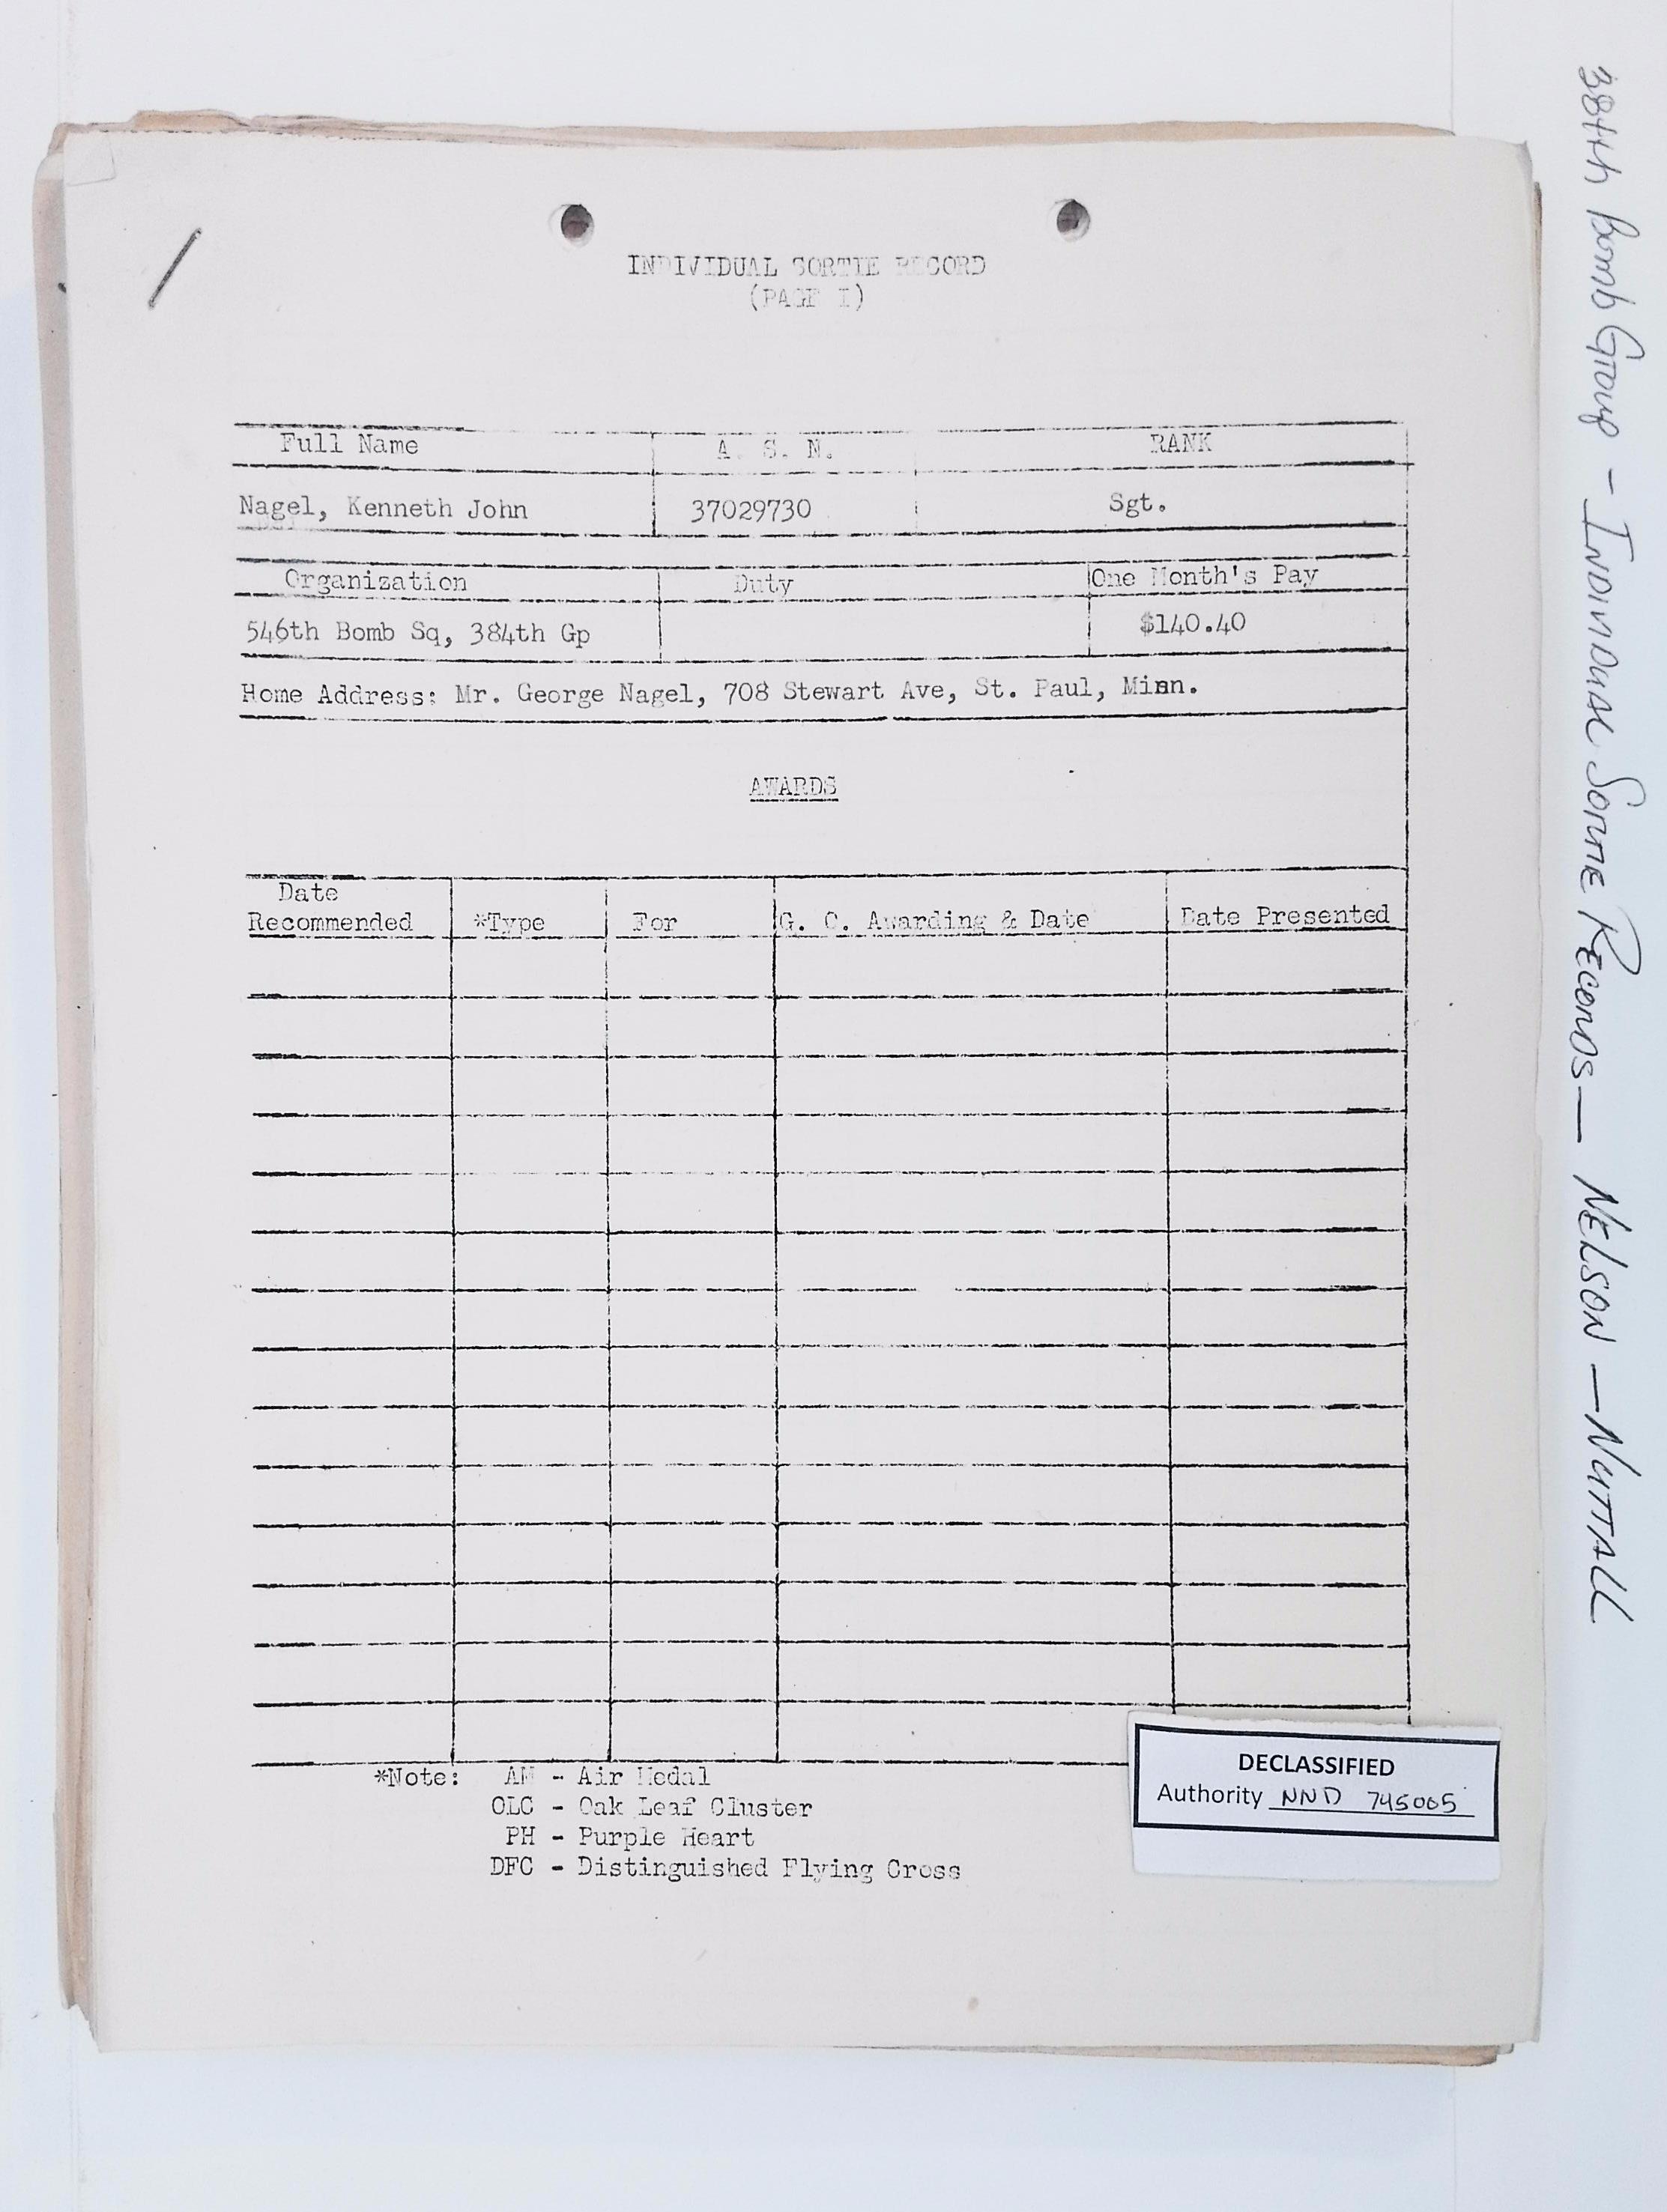 INDIVIDUAL SORTIE RECORD
(PAGE I)
Full Name A. S. N. RANK
Nagel, Kenneth John 37029730 Sgt.
Organization Duty One Month's Pay
546th Bomb Sq, 384th Gp $140.40
Home Address: Mr. George Nagel, 708 Stewart Ave, St. Paul, Minn.
AWARDS
Date
Recommended *Type For G. O. Awarding & Date Date Presented
*Note: AM - Air Medal
OLC - Oak Leaf Cluster
PH - Purple Heart
DFC - Distinguished Flying Cross
DECLASSIFIED
Authority NND 745005
384th Bomb Group - INDIVIDUAL SORTIE RECORDS — NELSON — NUTTALL